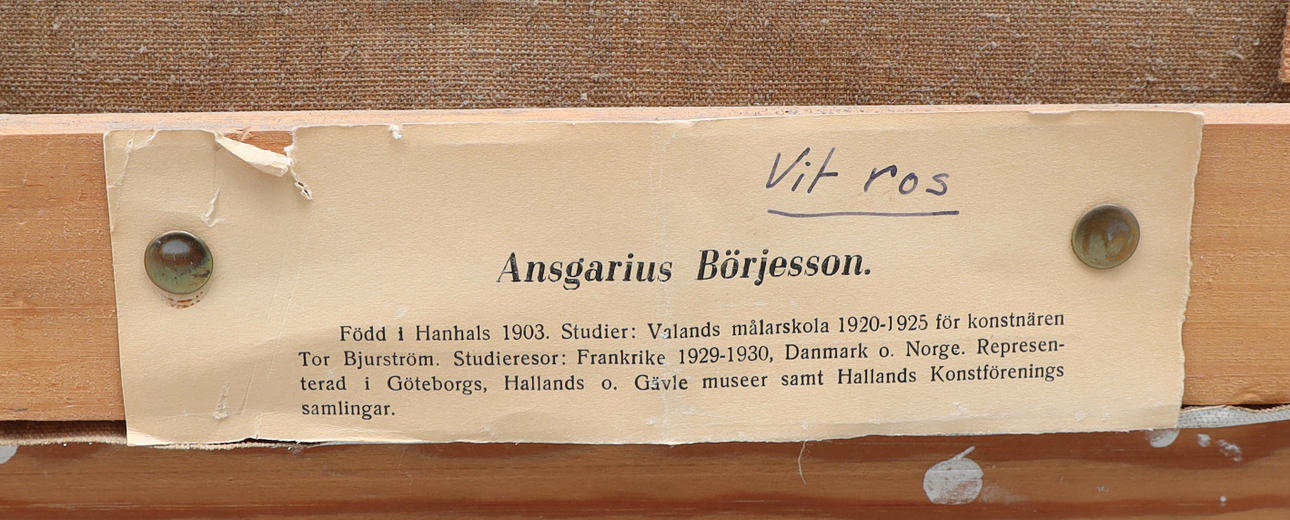 Vit ros
Ansgarius Börjesson.
Född i Hanhals 1903. Studier: Valands målarskola 1920-1925 för konstnären
Tor Bjurström. Studieresor: Frankrike 1929-1930, Danmark o. Norge. Represen-
terad i Göteborgs, Hallands o. Gävle museer samt Hallands Konstförenings
samlingar.